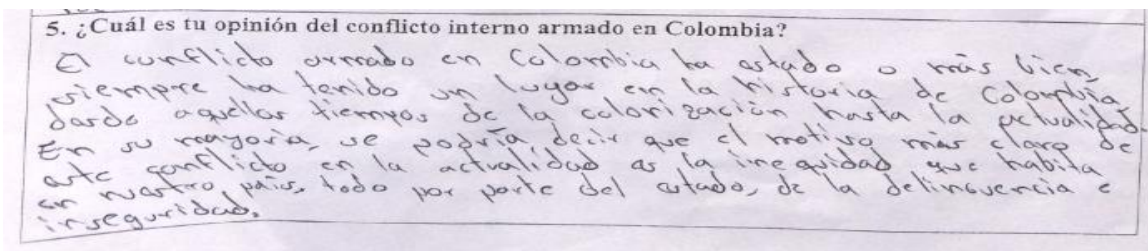 5. ¿Cuál es tu opinión del conflicto interno armado en Colombia?
El conflicto armado en Colombia ha estado o más bien,
siempre ha tenido un lugar en la historia de Colombia,
desde aquellos tiempos de la colonización hasta la actualidad
En su mayoría, se podría decir que el motivo más claro de
este conflicto en la actualidad es la inequidad que habita
en nuestro país, todo por parte del estado, de la delincuencia e
inseguridad.